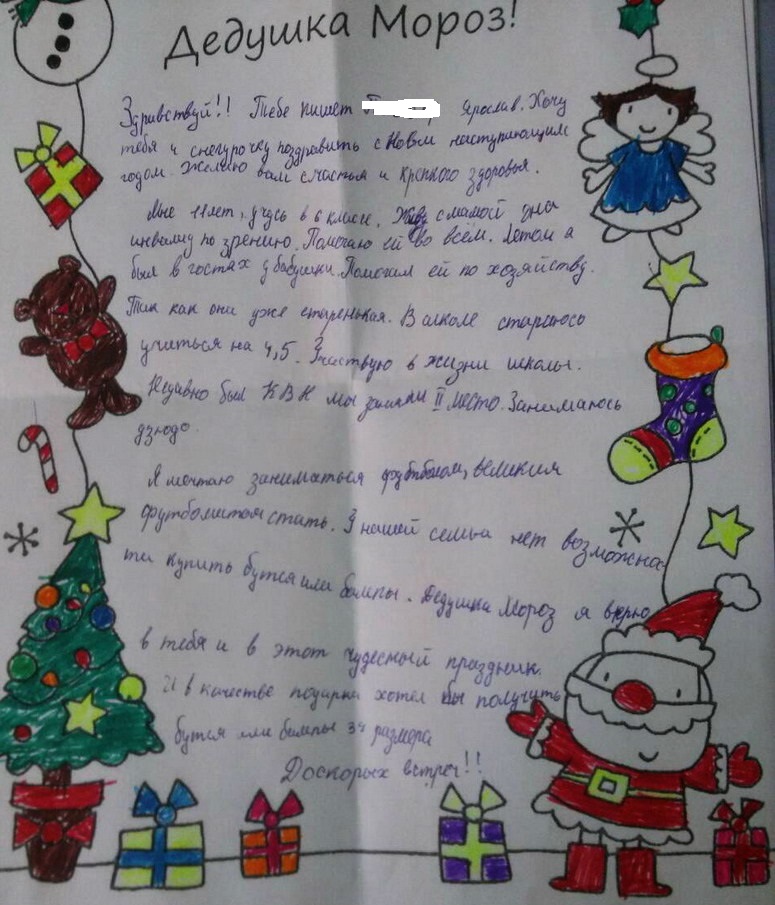 Дедушка Мороз!
Здравствуй!! Тебе пишет Ярослав. Хочу
тебя и снегурочку поздравить с Новым наступающим
годом. Желаю вам счастья и крепкого здоровья.
Мне 11 лет, учусь в 6 классе. Живу с мамой она
инвалид по зрению. Помогаю ей во всём. Летом я
был в гостях у бабушки. Помогал ей по хозяйству.
Так как они уже старенькая. В школе стараюсь
учиться на 4,5. Участвую в жизни школы.
Недавно был КВН мы заняли II место. Занимаюсь
дзюдо.
Я мечтаю заниматься футболом, великим
футболистом стать. У нашей семьи нет возможнос-
ти купить бутсы или бампы. Дедушка Мороз я верю
в тебя и в этот чудесный праздник.
И в качестве подарка хотел бы получить
бутсы или бампы 34 размера
Доскорых встреч!!